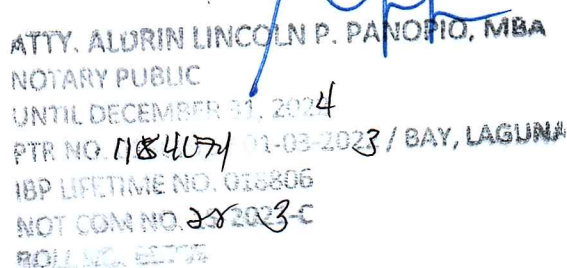 ATTY. ALDRIN LINCOLN P. PANOPIO, MBA
NOTARY PUBLIC
UNTIL DECEMBER 31, 2024
PTR NO. 01-03-2023 / BAY, LAGUNA
IBP LIFETIME NO. 018806
NOT COM NO. 2023-C
ROLL NO.